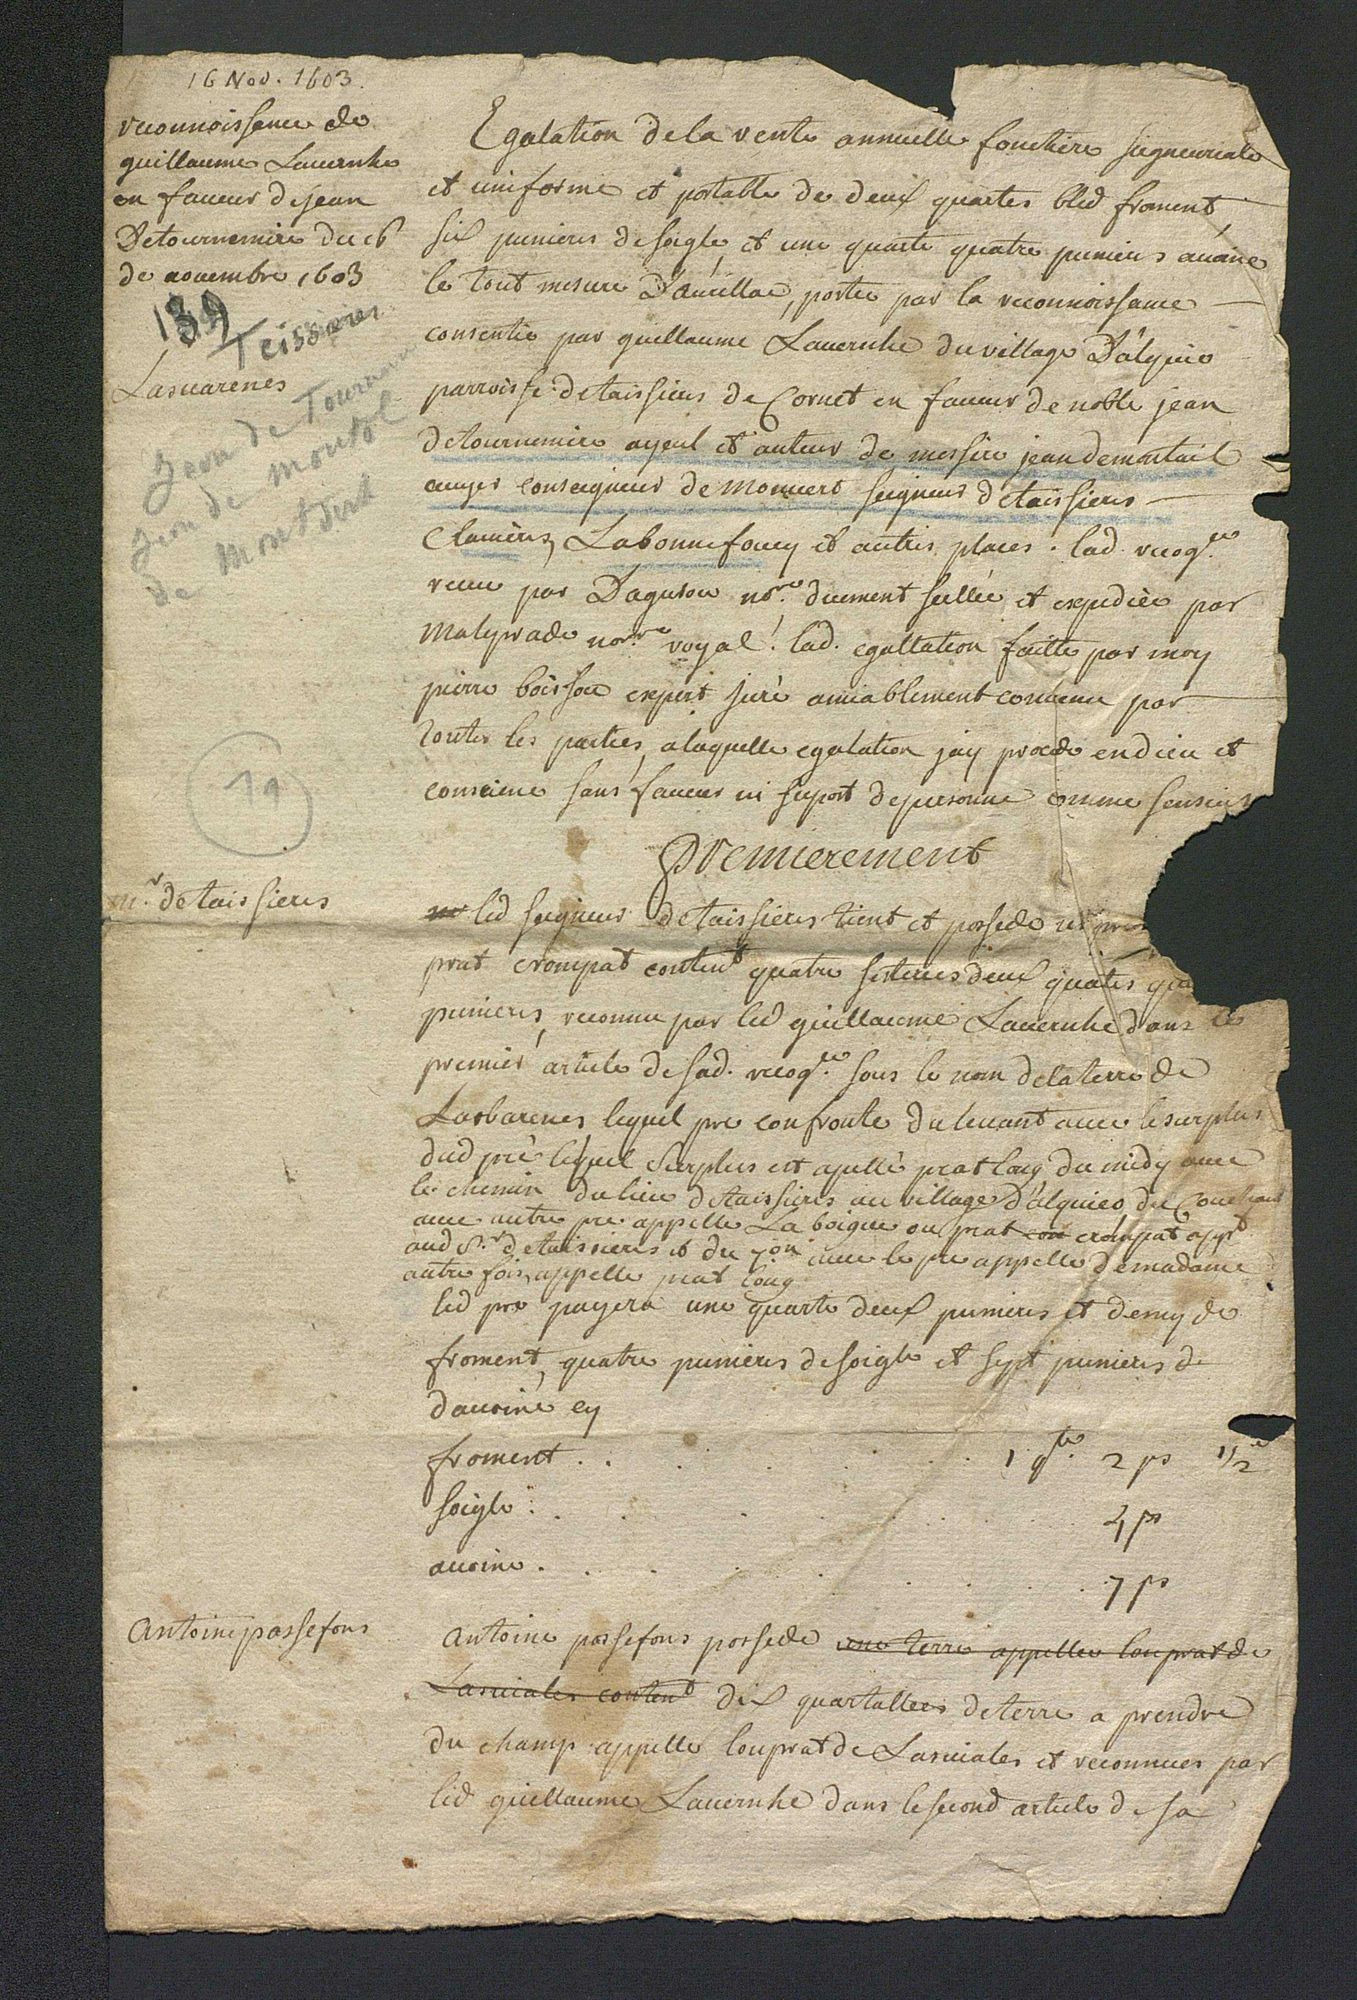 16 Nov. 1603.
reconnoissance de
guillaume Lavernhe
en faveur de jean
Detournemire du 16
de novembre 1603
139
Teissieres
Lasvarenes
Jean de Tournemire
Jean de Montal
de Montvert
19
Egalation de la rente annuelle fonciere seigneuriale
et uniforme et portable de deux quartes bled froment
six punieres de soigle, et une quarte quatre punieres avoine
le tout mesure D'aurillac, portee par la reconnoissance
consentie par guillaume Lavernhe du village D'alquie
parroisse de taissieres de Cornet en faveur de noble jean
detournemire ayeul et auteur de messire jean de montail
conseigneur de Monvert seigneur detaissieres
Clavieres, Labonnefoucy et autres places. lad. recog.ce
receue par Daguson no.re duement scellée et expediée par
Malyrade no.re royal. lad. egallation faitte par moy
pierre boisson expert juré amiablement convenu par
toutes les parties, a laquelle egalation jay procedé en dieu et
conscience sans faveur ni suport de personne comme sensuit
Premierement
m.r de taissieres
led seigneur detaissieres tient et possede un pré
prat crompat content quatre seterées deux quartes
punieres, reconnu par led guillaume Lavernhe dans le
premier article de sad. recog.ce sous le nom de la terre de
Lasbarenes lequel pre confronte du levant avec le surplus
dud pré lequel surplus est apellé prat long du midy avec
le chemin du lieu detaissieres au village d'alquies du Couchant
avec autre pre appelle La boigue ou prat crompat apt
aud S.r detaissieres et du 7on avec le pre appelle de madame
autre fois appelle prat long
led pre payera une quarte deux punieres et demy de
froment, quatre punieres de soigle et sept punieres de
d'avoine cy
froment . . . . . . . 1 q.te 2 ps 1/2
soigle . . . . . . . 4 ps
avoine . . . . . . . 7 ps
Antoine passefons
Antoine passefons possede une terre appellee lou prat de
Lasviales content dix quartallées de terre a prendre
du champ appelle lou prat de Lasviales et reconnues par
led guillaume Lavernhe dans le second article de sa